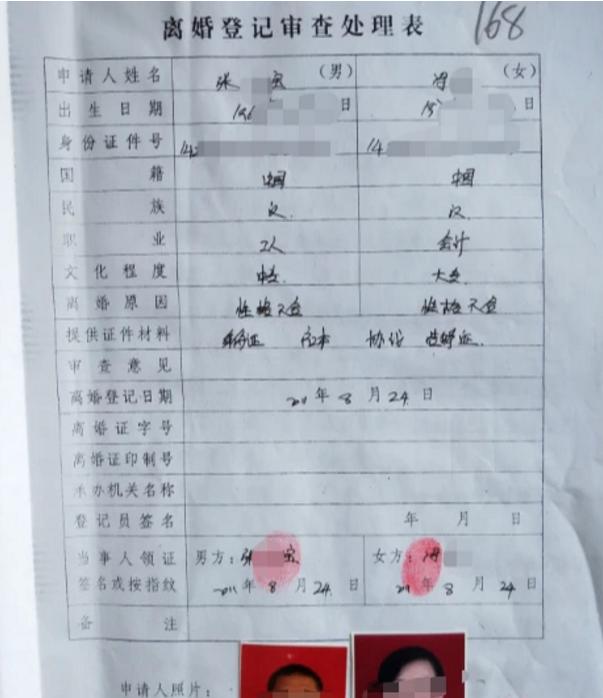 离婚登记审查处理表 168
申请人姓名 张 宝 (男) 冯 (女)
出生日期 196 日 19 日
身份证件号 14 14
国籍 中国 中国
民族 汉 汉
职业 工人 会计
文化程度 中专 大专
离婚原因 性格不合 性格不合
提供证件材料 身份证 户口本 协议 结婚证
审查意见
离婚登记日期 2011年8月24日
离婚证字号
离婚证印制号
承办机关名称
登记员签名 年 月 日
当事人领证 男方:张 宝 女方:冯
签名或按指纹 2011年8月24日 2011年8月24日
备注
申请人照片: